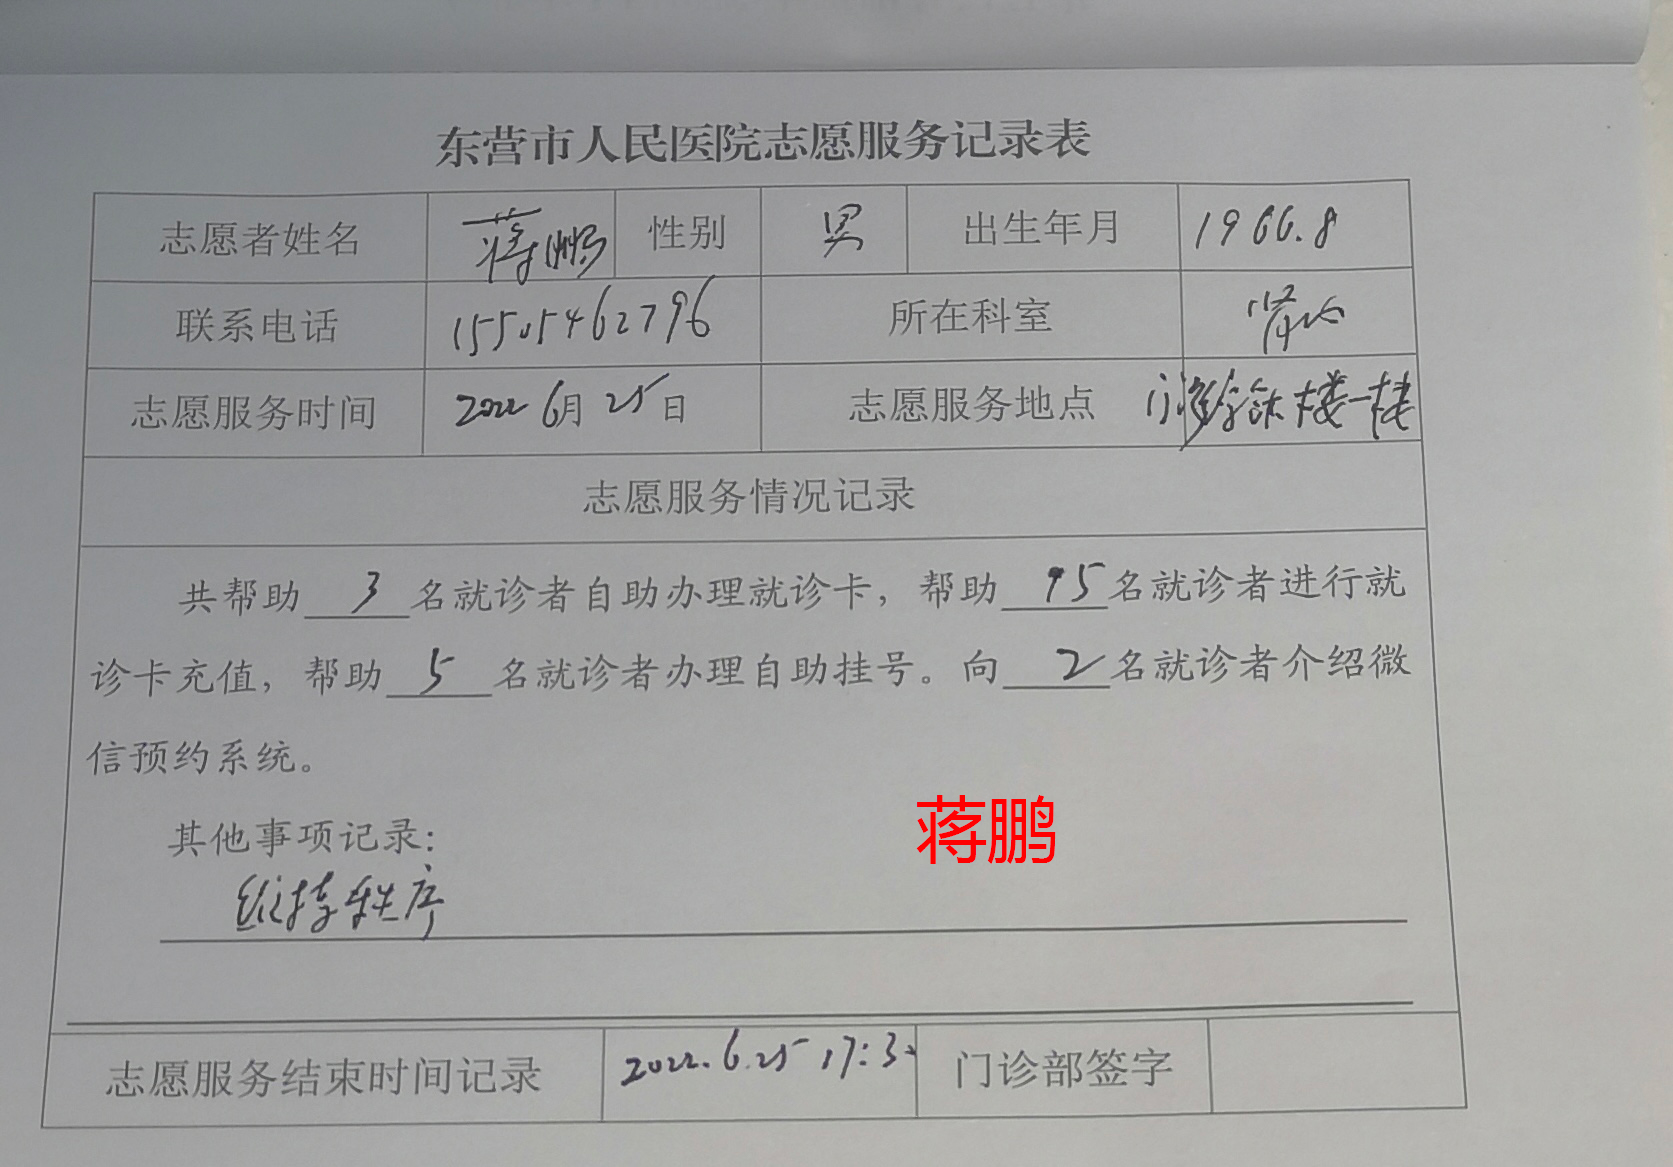 东营市人民医院志愿服务记录表
志愿者姓名 蒋鹏 性别 男 出生年月 1966.8
联系电话 15505462796 所在科室
志愿服务时间 2022 6月 25日 志愿服务地点 门诊综合楼一楼
志愿服务情况记录
共帮助 3 名就诊者自助办理就诊卡，帮助 15 名就诊者进行就
诊卡充值，帮助 5 名就诊者办理自助挂号。向 2 名就诊者介绍微
信预约系统。
蒋鹏
其他事项记录：
维持秩序
志愿服务结束时间记录 2022.6.25 17:30 门诊部签字